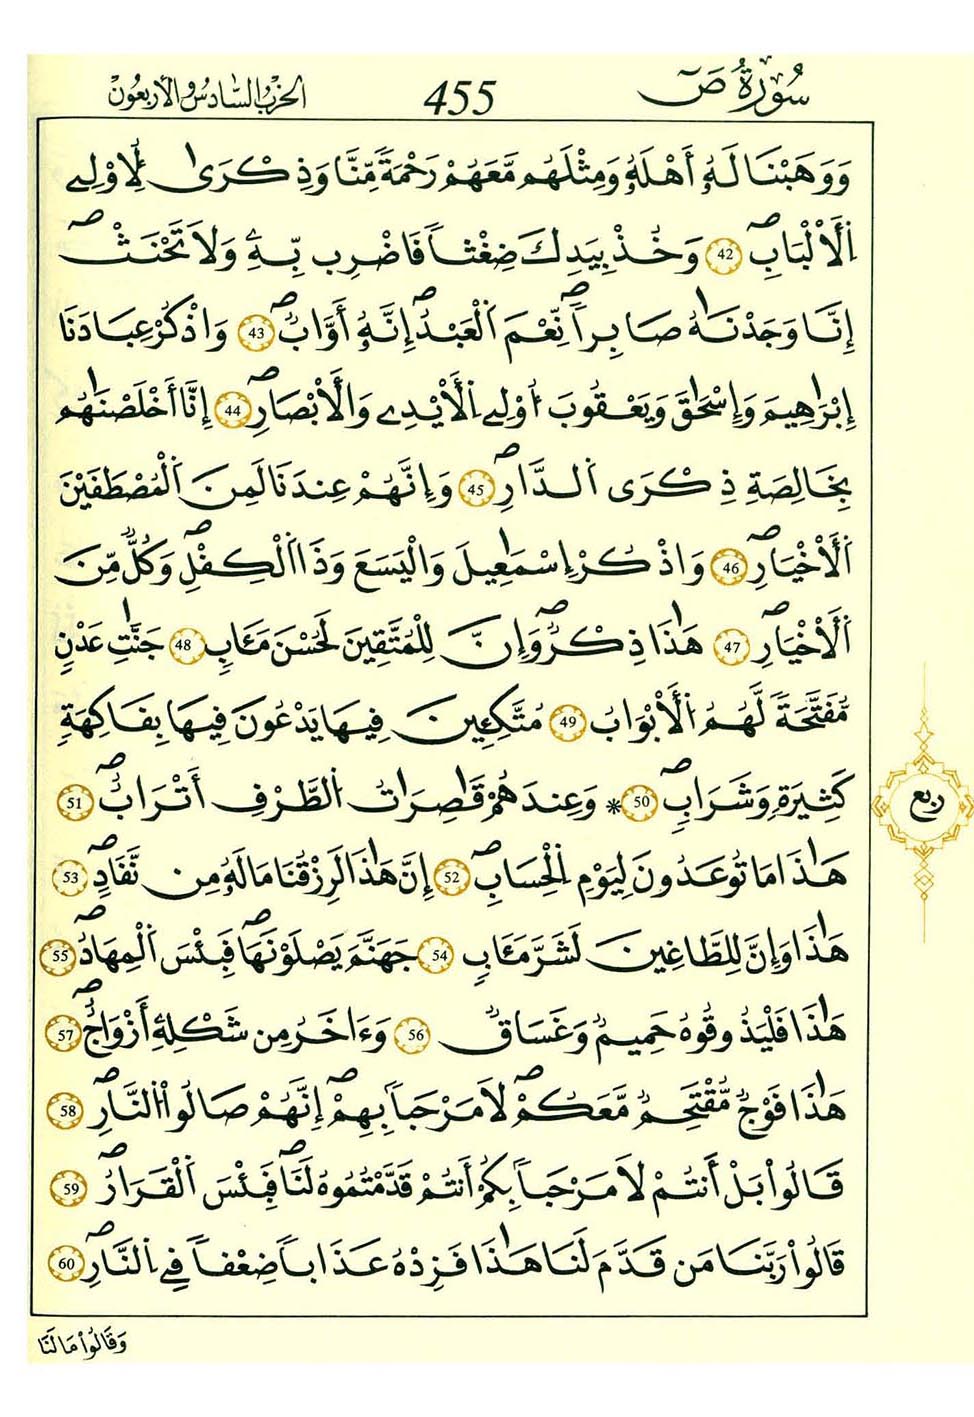 سُورَةُ صَ 455 الحزب السادس والأربعون
وَوَهَبْنَا لَهُۥٓ أَهْلَهُۥ وَمِثْلَهُم مَّعَهُمْ رَحْمَةً مِّنَّا وَذِكْرَىٰ لِأُوْلِے
اِ۬لَالْبَٰبِۖ 42 وَخُذْ بِيَدِكَ ضِغْثاً فَاضْرِب بِّهِۦ وَلَا تَحْنَثِۖ
اِنَّا وَجَدْنَٰهُ صَابِراًۖ نِّعْمَ اَ۬لْعَبْدُۖ إِنَّهُۥٓ أَوَّابٌۖ 43 وَاذْكُرْ عِبَٰدَنَآ
إِبْرَٰهِيمَ وَإِسْحَٰقَ وَيَعْقُوبَ أُوْلِے اِ۬لَايْدِے وَالَابْصٰ۪رِۖ 44 إِنَّآ أَخْلَصْنَٰهُم
بِخَالِصَةِ ذِكْرَى اَ۬لدَّارِۖ 45 وَإِنَّهُمْ عِندَنَا لَمِنَ اَ۬لْمُصْطَفَيْنَ
اَ۬لَاخْيارِۖ 46 وَاذْكُرِ اِسْمَٰعِيلَ وَالْيَسَعَ وَذَا اَ۬لْكِفْلِۖ وَكُلٌّ مِّنَ
اَ۬لَاخْيارِۖ 47 هَٰذَا ذِكْرٌۖ وَإِنَّ لِلْمُتَّقِينَ لَحُسْنَ مَـَٔابٍ 48 جَنَّٰتِ عَدْنٍ
مُّفَتَّحَةً لَّهُمُ اُ۬لَابْوَٰبُ 49 مُتَّكِـِٕينَ فِيهَا يَدْعُونَ فِيهَا بِفَٰكِهَةٍ
كَثِيرَةٍ وَشَرَابٍۖ 50 * وَعِندَهُمْ قَٰصِرَٰتُ اُ۬لطَّرْفِ أَتْرَابٌۖ 51
هَٰذَا مَا تُوعَدُونَ لِيَوْمِ اِ۬لْحِسَابِۖ 52 إِنَّ هَٰذَا لَرِزْقُنَا مَا لَهُۥ مِن نَّفَادٍۖ 53
هَٰذَا وَإِنَّ لِلطَّٰغِينَ لَشَرَّ مَـَٔابٍ 54 جَهَنَّمَ يَصْلَوْنَهَاۖ فَبِئْسَ اَ۬لْمِهَادُۖ 55
هَٰذَا فَلْيَذُوقُوهُ حَمِيمٌ وَغَسَاقٌ 56 وَءَاخَرُ مِن شَكْلِهِۦٓ أَزْوَٰجٌۖ 57
هَٰذَا فَوْجٌ مُّقْتَحِمٌ مَّعَكُمْۖ لَا مَرْحَباً بِهِمُۥٓۖ إِنَّهُمْ صَالُواْ اُ۬لنّ۪ارِۖ 58
قَالُواْ بَلْ أَنتُمْ لَا مَرْحَباً بِكُمُۥٓ أَنتُمْ قَدَّمْتُمُوهُ لَنَاۖ فَبِئْسَ اَ۬لْقَرَارُۖ 59
قَالُواْ رَبَّنَا مَن قَدَّمَ لَنَا هَٰذَا فَزِدْهُ عَذَاباً ضِعْفاً فِے اِ۬لنّ۪ارِۖ 60
ربع
وَقَالُواْ مَا لَنَا